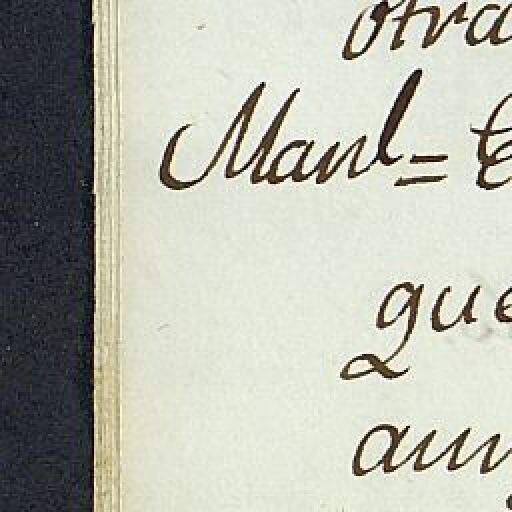 otra
Manl=
que
aun